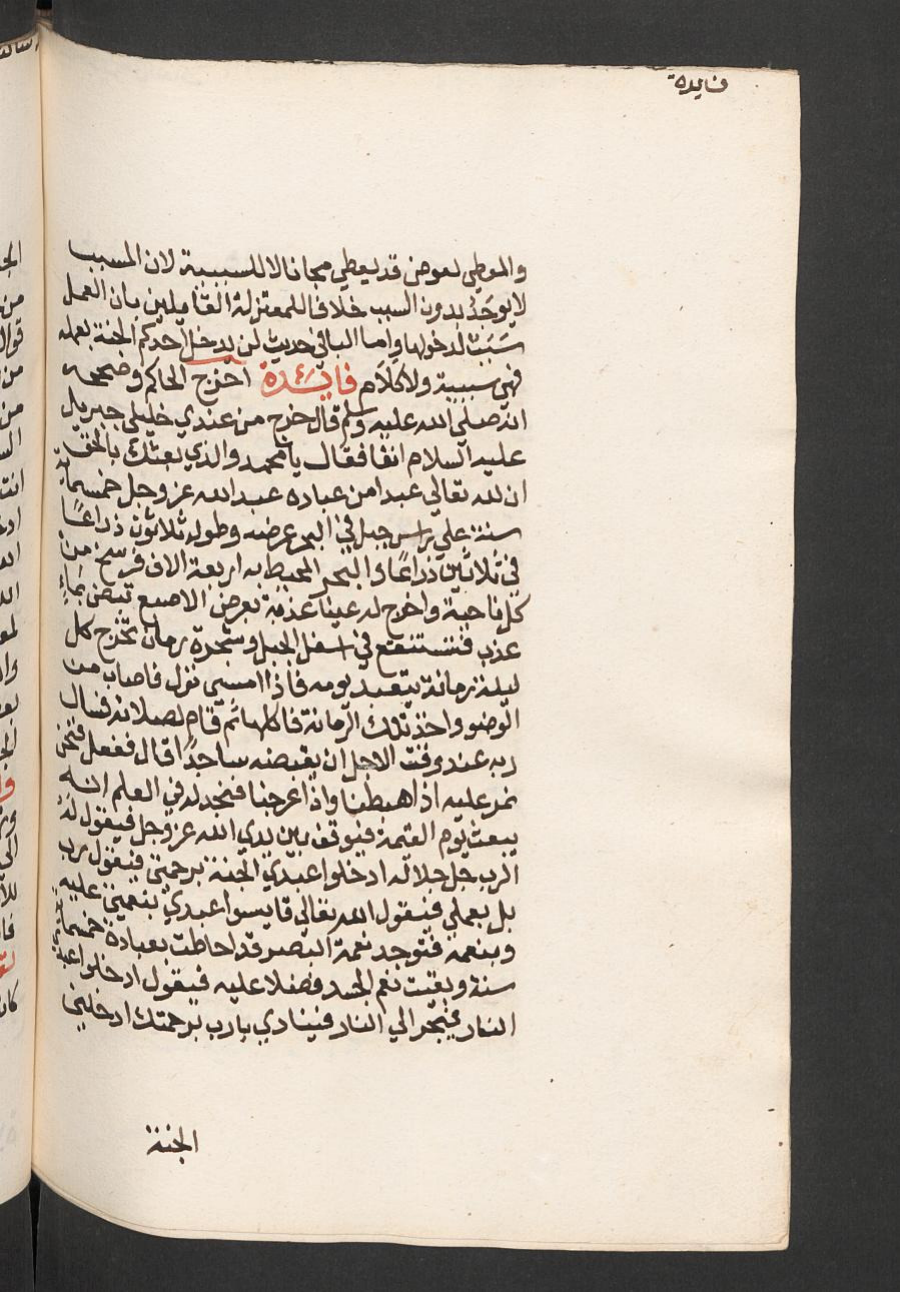 فايدة
والمعطي لعوض قد يعطي مجانا لا للسببية لان المسبب
لا يوجَدُ بدون السبب خلافا للمعتزلة القايلين بان العمل
سَبَبٌ لدخولها واما الباء في حديث لن يدخل احدكم الجنة بعمله
فهي سببية ولا كلام فايدة اخرج الحاكم وصححه
انه صلي الله عليه وسلم قال خرج من عندي خليلي جبريل
عليه السلام انفا فقال يا محمد والذي بعثك بالحق
ان لله تعالي عبدا من عباده عبد الله عز وجل خمسماية
سنة علي راس جبل في البحر عرضه وطوله ثلاثون ذراعًا
في ثلاثين ذراعًا والبحر المحيط به اربعة الاف فرسخ من
كل ناحية واخرج له عينا عذبة بعرض الاصبع تبض بماءٍ
عذب فتستنقع في اسفل الجبل وشجرة رمان تخرج كل
ليلة رمانة يتعبد يومه فاذا امسي نزل فاصاب من
الوضو واخذ تلك الرمانة فاكلها ثم قام لصلاته فسال
ربه عند وقت الاجل ان يقبضه ساجدًا قال ففعل فنحن
نمر عليه اذا هبطنا واذا عرجنا فنجد له في العلم انه
يبعث يوم القيمة فيوقف بين يدي الله عز وجل فيقول له
الرب جل جلاله ادخلوا عبدي الجنة برحمتي فيقول رب
بل بعملي فيقول الله تعالي قايسوا عبدي بنعمتي عليه
وبنعمه فتوجد نعمة البصر قد احاطت بعبادة خمسماية
سنة وبقيت نعم الجسد فضلا عليه فيقول ادخلوا عبدي
النار فيجر الي النار فينادي يا رب برحمتك ادخلني
الجنة